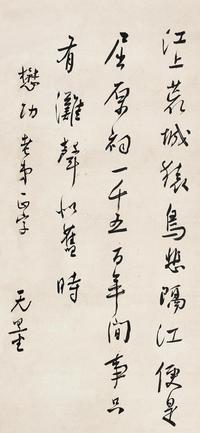 江上荒城猿鸟悲隔江便是
屈原祠一千五百年间事只
有滩声似旧时
懋功老弟正字
无量